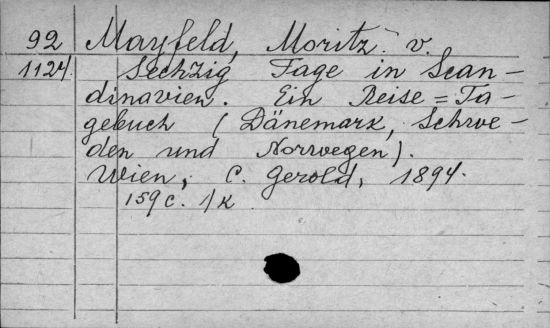 92 Mayfeld, Moritz v.
1124. Sechzig Tage in Scan-
dinavien. Ein Reise=Ta-
gebuch (Dänemark, Schwe-
den und Norwegen).
Wien, C. Gerold, 1894.
159 c. 1/k